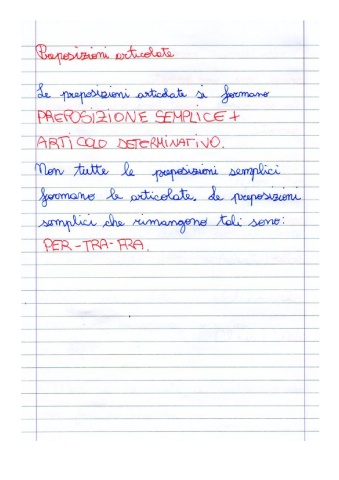 Preposizioni articolate
Le preposizioni articolate si formano
PREPOSIZIONE SEMPLICE +
ARTICOLO DETERMINATIVO.
Non tutte le preposizioni semplici
formano le articolate. Le preposizioni
semplici che rimangono tali sono:
PER-TRA-FRA.